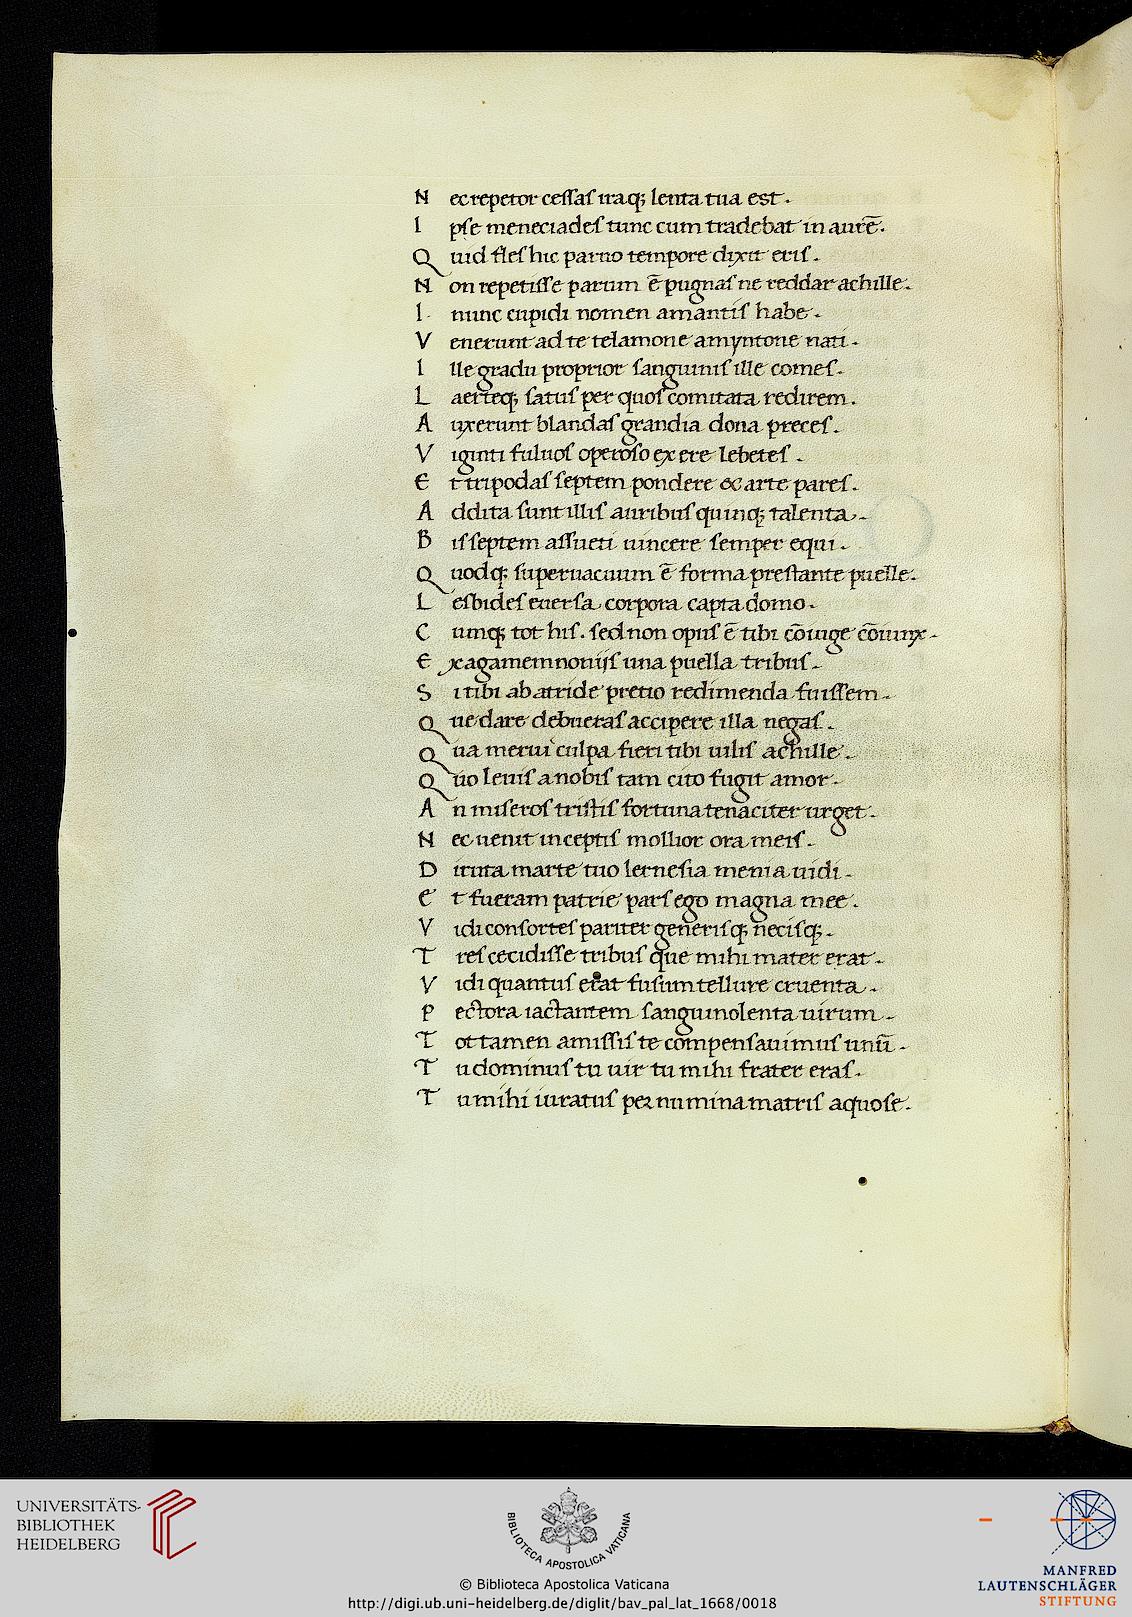 N ec repetor cessas iraq; lenta tua est.
I pse meneciades tunc cum tradebat in aurē.
Q uid fles hic paruo tempore dixit eris.
N on repetisse parum ē pugnas ne reddar achille.
I nunc cupidi nomen amantis habe.
V enerunt ad te telamone amyntone nati.
I lle gradu proprior sanguinis ille comes.
L aerteq; satus per quos comitata redirem.
A uxerunt blandas grandia dona preces.
V iginti fuluos operoso ex ere lebetes.
E t tripodas septem pondere & arte pares.
A ddita sunt illis auribus quinq; talenta.
B is septem assueti uincere semper equi.
Q uodq; superuacuum ē forma prestante puelle.
L esbides euersa corpora capta domo.
C umq; tot his. sed non opus ē tibi cōiuge cōiunx.
E x agamemnoniis una puella tribus.
S i tibi ab atride pretio redimenda fuissem.
Q ue dare debueras accipere illa negas.
Q ua merui culpa fieri tibi uilis achille.
Q uo leuis a nobis tam cito fugit amor.
A n miseros tristis fortuna tenaciter urget.
N ec uenit inceptis mollior ora meis.
D iruta marte tuo lernesia menia uidi.
E t fueram patrie pars ego magna mee.
V idi consortes pariter generisq; necisq;.
T res cecidisse tribus que mihi mater erat.
V idi quantus erat fusum tellure cruenta.
P ectora iactantem sanguinolenta uirum.
T ot tamen amissis te compensauimus unū.
T u dominus tu uir tu mihi frater eras.
T u mihi iuratus per numina matris aquose.
UNIVERSITÄTS-
BIBLIOTHEK
HEIDELBERG
BIBLIOTECA APOSTOLICA VATICANA
MANFRED
LAUTENSCHLÄGER
STIFTUNG
© Biblioteca Apostolica Vaticana
http://digi.ub.uni-heidelberg.de/diglit/bav_pal_lat_1668/0018